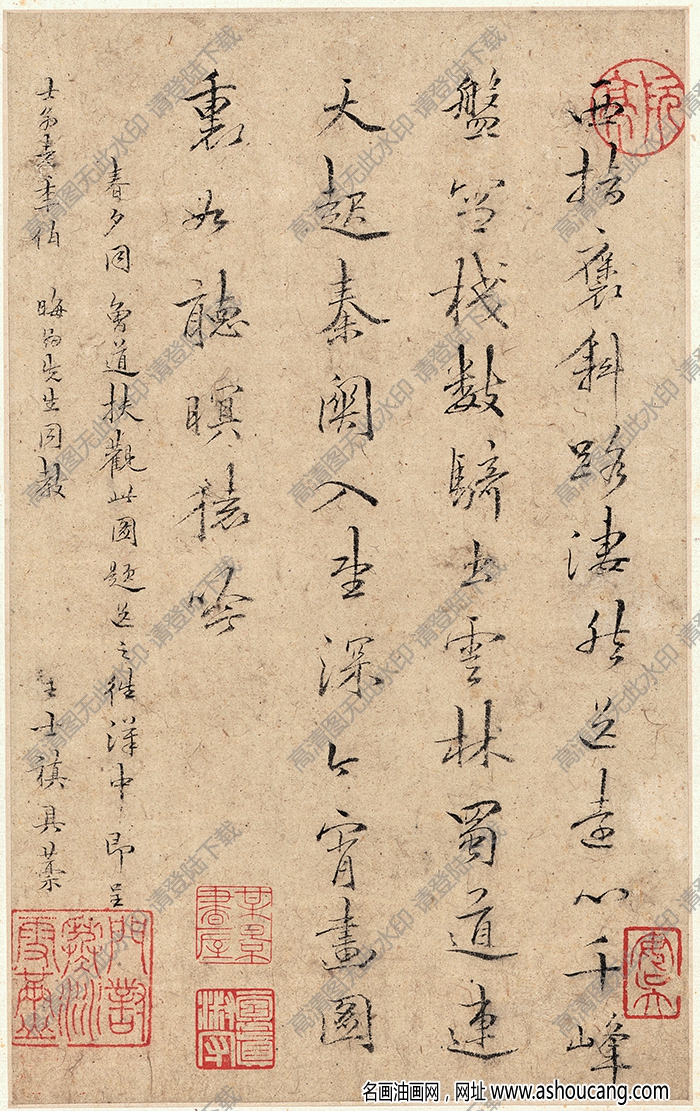 西指褒斜路淒然送遠心千峰
盤空棧數騎出雲林蜀道連
天起秦關入望深今宵畫圖
裏如聽暝猿吟
春夕同魯道扶觀此圖題送之往漢中即呈
士翁老年伯 晦翁先生同教
王士禛具藁
高清图无此水印 请登陆下载
名画油画网，网址 www.ashoucang.com